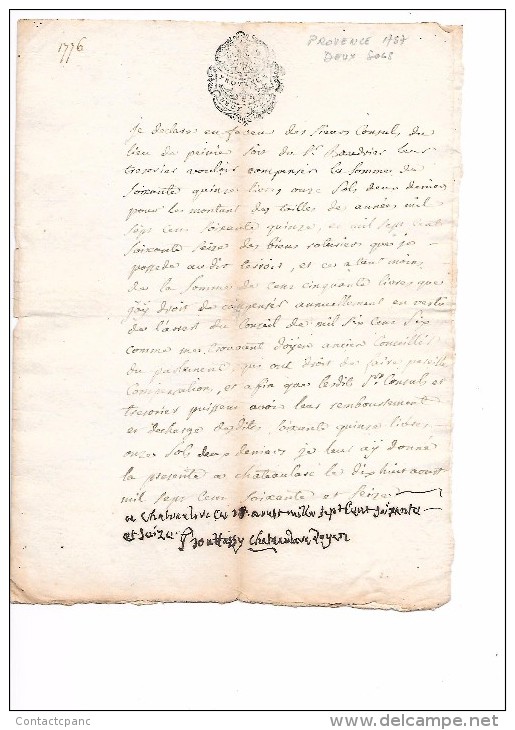 1776
PROVENCE 1767
DEUX SOLS
Je declare en faveur des sieurs Consuls du
lieu de peinier soit du Sr. leur
tresorier vouloir compenser la somme de
soixante quinze livres onze sols deux deniers
pour les montant des tailles des années mil
sept cens soixante quinze, et mil sept cens
soixante seize des biens roturiers que je
possede au dit terroir, et ce a tant moins
de la somme de cens cinquante livres que
j'ay droit de compenser annuellement en vertu
de l'arrest du Conseil de mil six cens six
comme me trouvant doyen ancien Conseiller
du parlement qui ont droit de faire pareille
Compensation, et afin que lesdits Srs. Consuls et
tresorier puissent avoir leur remboursement
et decharge desdites soixante quinze livres
onze sols deux deniers je leur ay donné
la presente a chateularc le dixhuit aoust
mil sept cens soixante et seize
a chateaularc ce 18 aoust mille sept cent soixante
et seize Chateaularc Doyen
Contactcpanc
www.delcampe.net